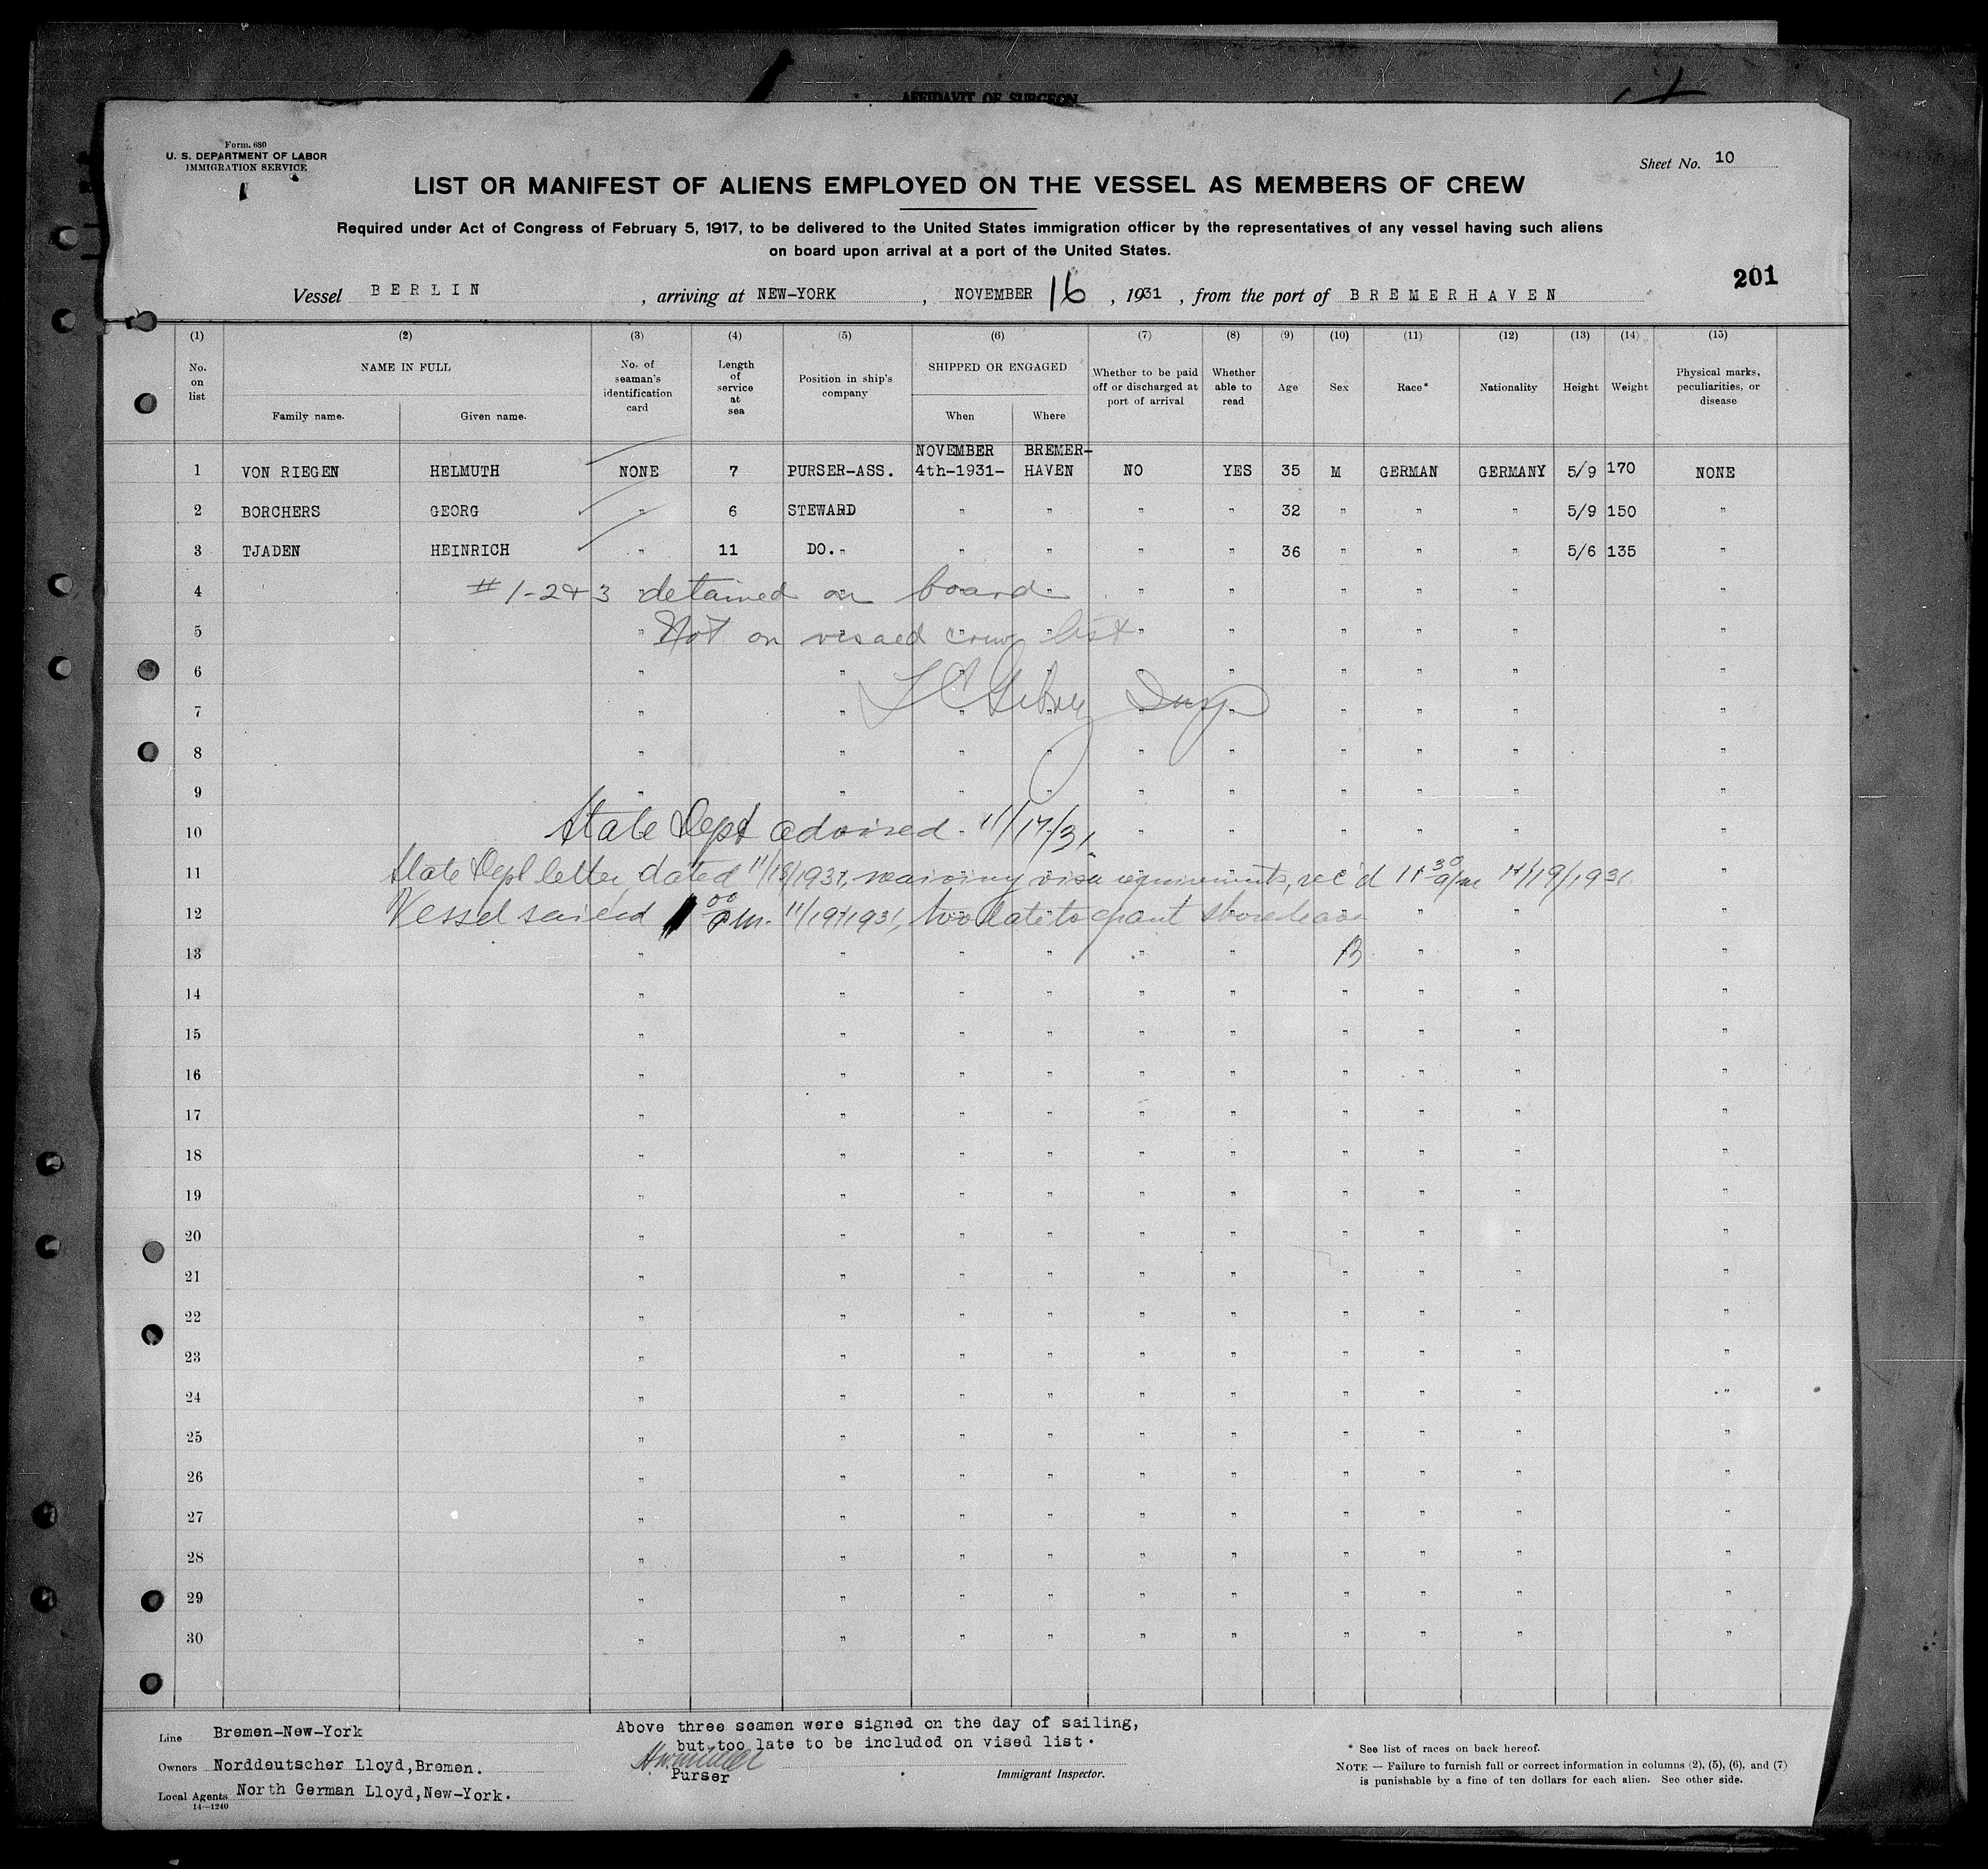 AFFIDAVIT OF SURGEON
Form. 680
U. S. DEPARTMENT OF LABOR
IMMIGRATION SERVICE
Sheet No. 10
LIST OR MANIFEST OF ALIENS EMPLOYED ON THE VESSEL AS MEMBERS OF CREW
Required under Act of Congress of February 5, 1917, to be delivered to the United States immigration officer by the representatives of any vessel having such aliens
on board upon arrival at a port of the United States.
201
Vessel BERLIN , arriving at NEW-YORK , NOVEMBER 16 , 1931 , from the port of BREMERHAVEN
(1) (2) (3) (4) (5) (6) (7) (8) (9) (10) (11) (12) (13) (14) (15)
No. on list NAME IN FULL Family name. Given name. No. of seaman's identification card Length of service at sea Position in ship's company SHIPPED OR ENGAGED When Where Whether to be paid off or discharged at port of arrival Whether able to read Age Sex Race* Nationality Height Weight Physical marks, peculiarities, or disease
NOVEMBER BREMER-
1 VON RIEGEN HELMUTH NONE 7 PURSER-ASS. 4th-1931- HAVEN NO YES 35 M GERMAN GERMANY 5/9 170 NONE
2 BORCHERS GEORG " 6 STEWARD " " " " 32 " " " 5/9 150 "
3 TJADEN HEINRICH " 11 DO. " " " " " 36 " " " 5/6 135 "
4 #1-2+3 detained on board
5 Not on visaed crew list
6
7 Insp
8
9
10 State Dept advised 11/17/31.
11 State Dept letter dated 11/18/1931, waiving visa requirements, rec'd 11 30 a/m 11/19/1931
12 Vessel sailed 1 00 p.m. 11/19/1931, too late to grant shore leave
13 B
14
15
16
17
18
19
20
21
22
23
24
25
26
27
28
29
30
Line Bremen-New-York
Owners Norddeutscher Lloyd,Bremen.
Local Agents North German Lloyd,New-York.
14—1240
Above three seamen were signed on the day of sailing,
but too late to be included on vised list.
Purser
Immigrant Inspector.
* See list of races on back hereof.
NOTE — Failure to furnish full or correct information in columns (2), (5), (6), and (7)
is punishable by a fine of ten dollars for each alien. See other side.